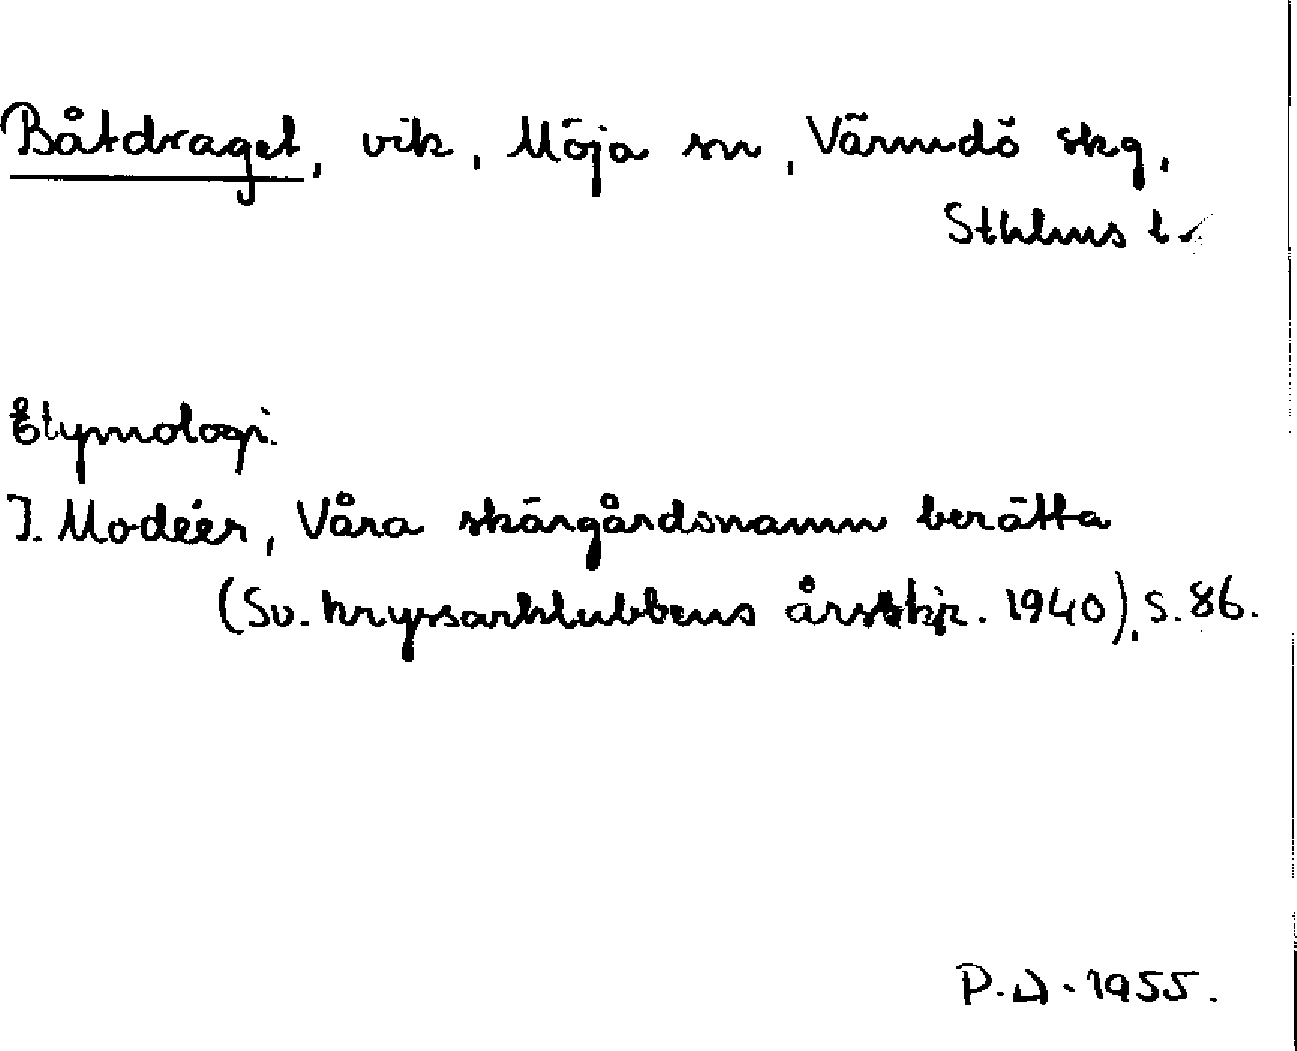 Båtdraget, vik, Möja sn, Värmdö skg,
Sthlms l.
Etymologi.
I. Modéer, Våra skärgårdsnamn berätta
(Sv. Kryssarklubbens årsskr. 1940), s. 86.
P.A. 1955.